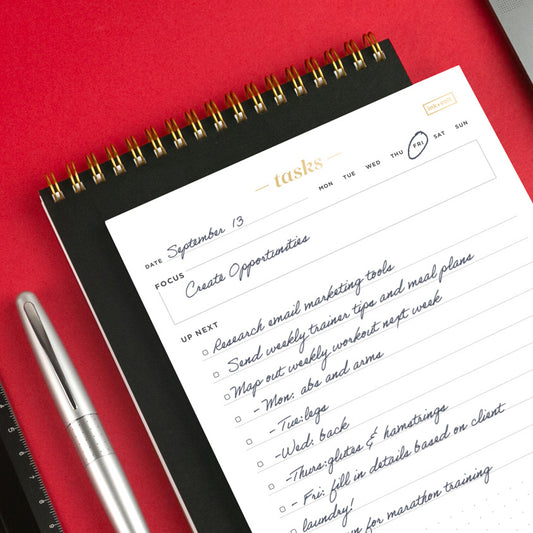 inkwell
tasks
MON TUE WED THU FRI SAT SUN
DATE September 13
FOCUS
Create Opportunities
UP NEXT
Research email marketing tools
Send weekly trainer tips and meal plans
Map out weekly workout next week
-Mon: abs and arms
-Tue:legs
-Wed: back
-Thurs:glutes & hamstrings
-Fri: fill in details based on client
laundry!
for marathon training